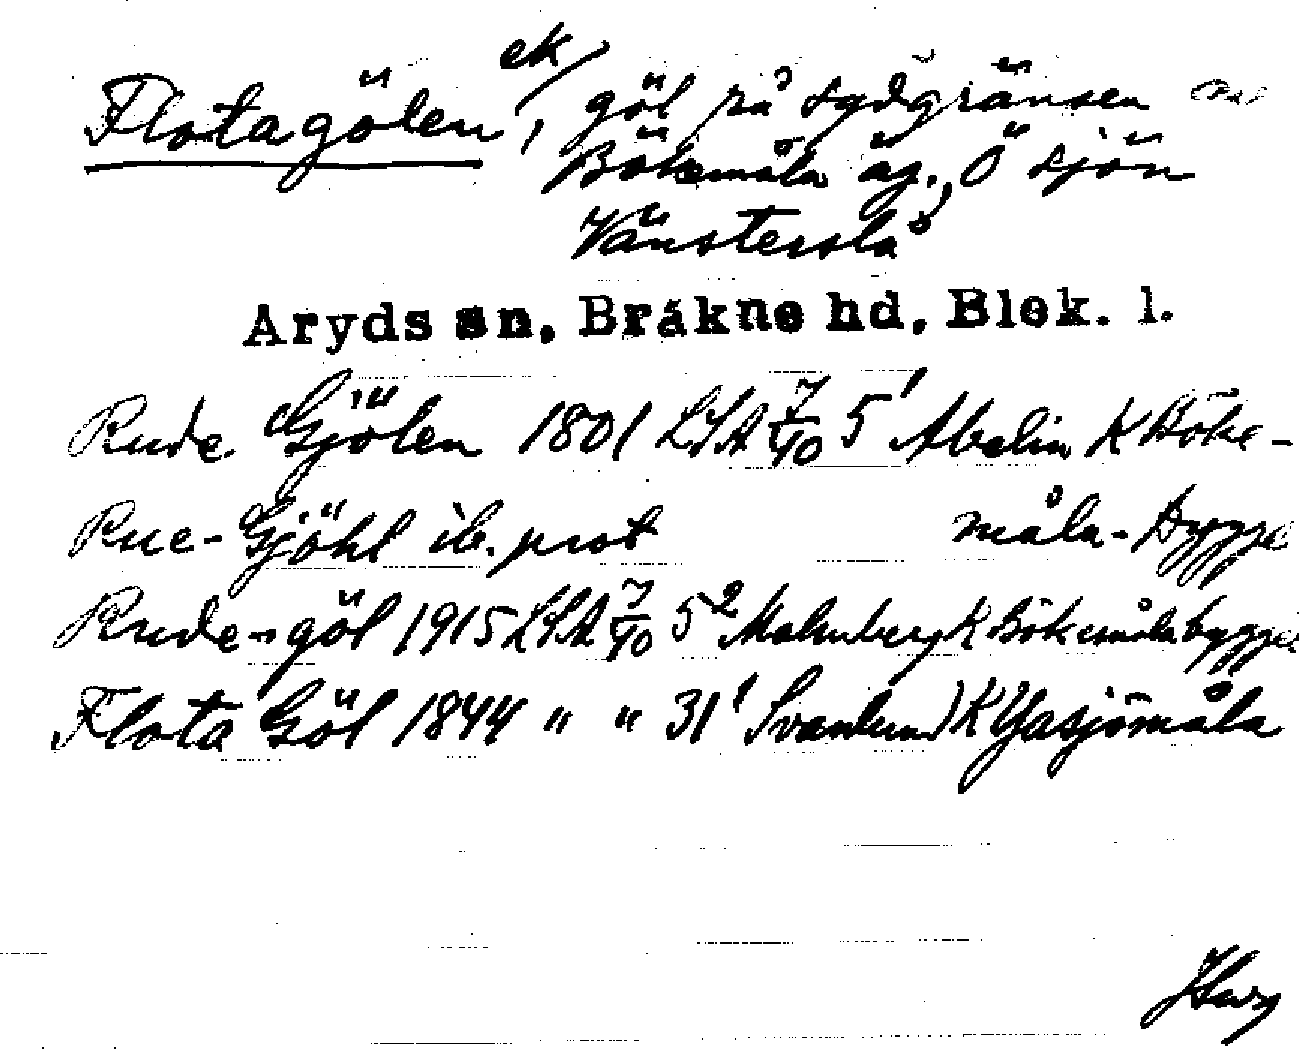 Flotagölen ek/, göl på sydgränsen av
Bökemåla äg., Ö sjön
Vänsterslå
Aryds sn, Bräkne hd, Blek. l.
Rude Gjölen 1801 LSA 7/40 5¹ Abelin K Böke-
Rue-Gjöhl ib. prot måla-bygge
Rude-göl 1915 LSA 7/40 5² Malmberg K Bökemålabygge
Flota Göl 1844 " " 31¹ Svanlund K Yasjömåla